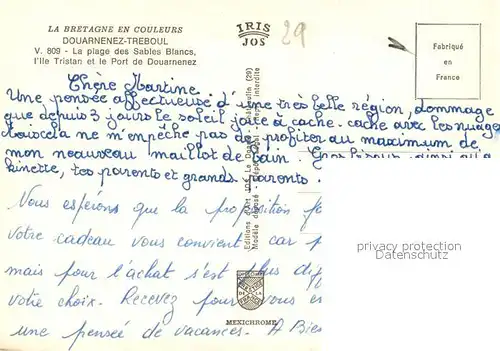 LA BRETAGNE EN COULEURS
DOUARNENEZ-TREBOUL
V. 809 - La plage des Sables Blancs,
l'Ile Tristan et le Port de Douarnenez
IRIS
JOS
29
Fabriqué
en
France
Chère Martine
Une pensée affectueuse d'une très belle région, dommage
que depuis 3 jours le soleil joue à cache-cache avec les nuages
Mais cela ne m'empêche pas de profiter au maximum de
mon nouveau maillot de bain.
kinette, tes parents et grands-parents.
Nous espérons que la proposition
votre cadeau vous convient car
mais pour l'achat s'est plus
votre choix. Recevez pour vous
une pensée de vacances. A
Editions d'Art JOS Le
MEXICHROME
privacy protection
Datenschutz